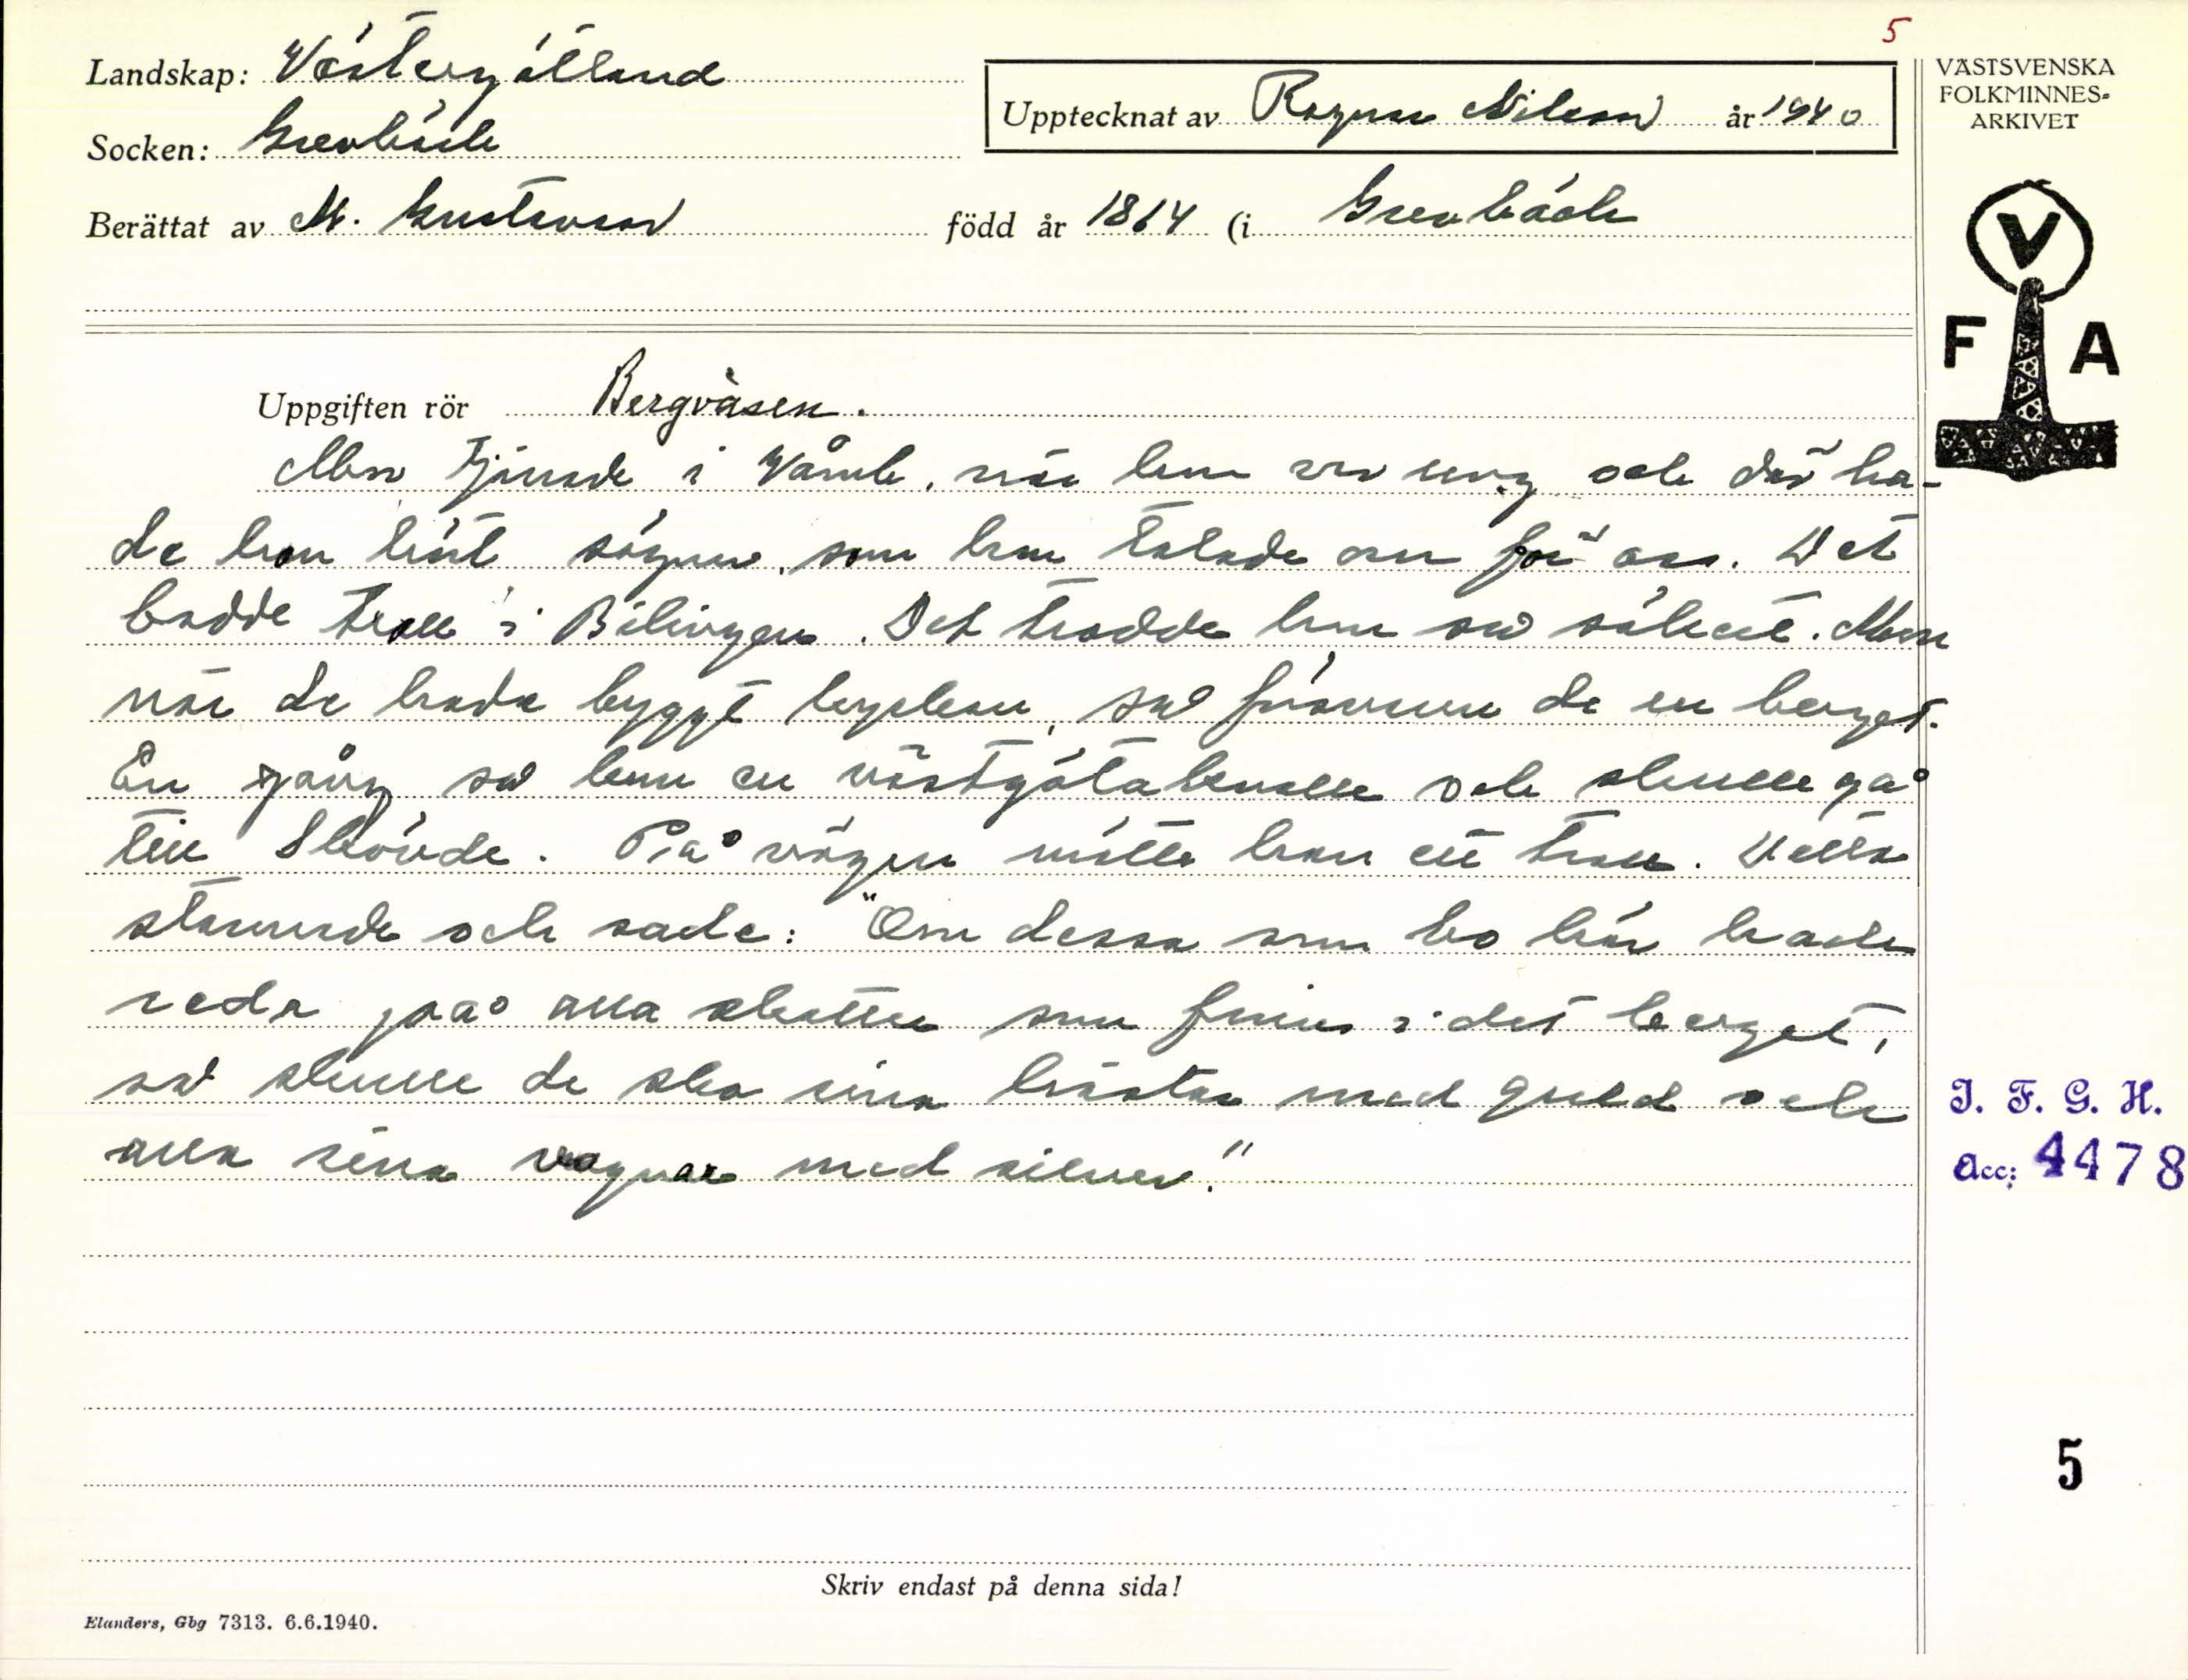 5
Landskap: Västergötland
Upptecknat av Ragnar Nilsson år 1940
VÄSTSVENSKA
FOLKMINNES-
ARKIVET
Socken: Grevbäck
Berättat av M. Gustavsson född år 1864 (i Grevbäck
V
F A
Uppgiften rör Bergväsen.
Mor tjänade i Våmb, när hon var ung och där ha-
de hon hört sägner, som hon talade om för oss. Det
bodde troll i Bilingen. Det trodde hon så säkert. Men
när de hade byggt kyrkan, så försvann de ur berget.
En gång så kom en västgötaknalle och skulle gå
till Skövde. På vägen mötte han ett troll. Detta
stannade och sade: "Om dessa som bo här hade
reda på alla skatter som finns i det berget,
så skulle de sko sina hästar med guld och
alla sina vagnar med silver."
I. F. G. H.
Acc: 4478
5
Skriv endast på denna sida!
Elanders, Gbg 7313. 6.6.1940.